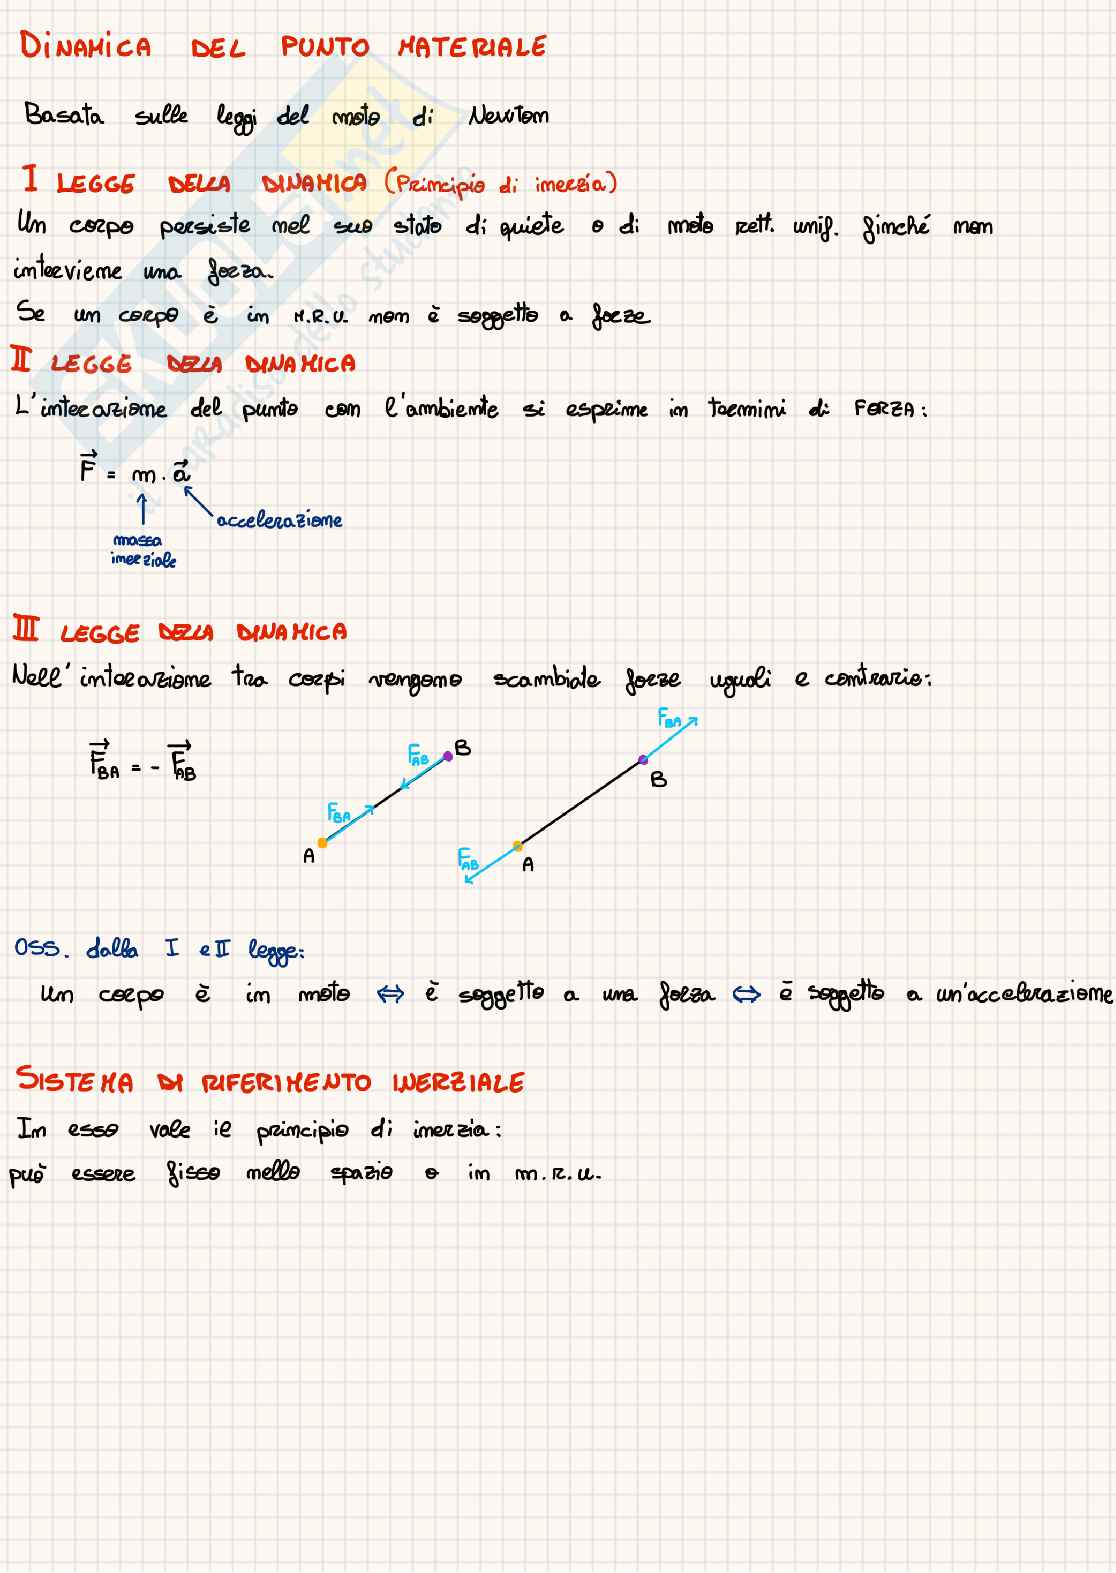 DINAMICA DEL PUNTO MATERIALE
Basata sulle leggi del moto di Newton
I LEGGE DELLA DINAMICA (Principio di inerzia)
Un corpo persiste nel suo stato di quiete o di moto rett. unif. finché non
interviene una forza.
Se un corpo è in M.R.U. non è soggetto a forze
II LEGGE DELLA DINAMICA
L'interazione del punto con l'ambiente si esprime in termini di FORZA:
F⃗ = m · a⃗
accelerazione
massa
inerziale
III LEGGE DELLA DINAMICA
Nell'interazione tra corpi vengono scambiate forze uguali e contrarie:
F⃗BA = - F⃗AB
FAB B
FBA
A
FBA
B
FAB
A
OSS. dalla I e II legge:
Un corpo è in moto ⇔ è soggetto a una forza ⇔ è soggetto a un'accelerazione
SISTEMA DI RIFERIMENTO INERZIALE
In esso vale il principio di inerzia:
può essere fisso nello spazio o in m.r.u.
SKUOLA.net
il paradiso dello studente